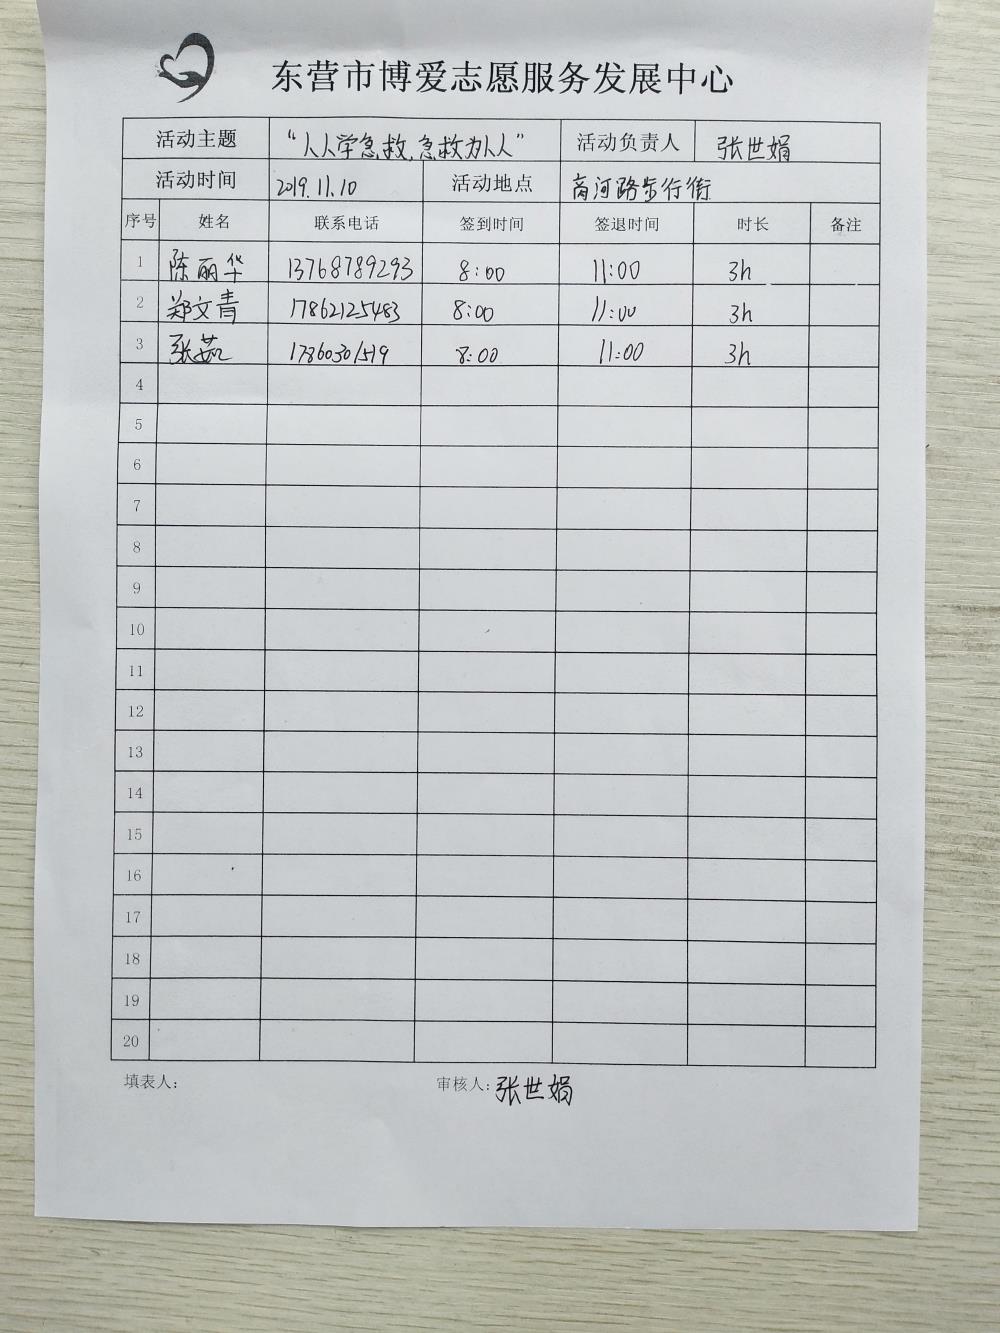 东营市博爱志愿服务发展中心
活动主题 “人人学急救,急救为人人” 活动负责人 张世娟
活动时间 2019.11.10 活动地点 商河路步行街
序号 姓名 联系电话 签到时间 签退时间 时长 备注
1 陈丽华 13768789293 8:00 11:00 3h
2 郑文青 17862125483 8:00 11:00 3h
3 张茹 17860301519 8:00 11:00 3h
4
5
6
7
8
9
10
11
12
13
14
15
16
17
18
19
20
填表人: 审核人: 张世娟